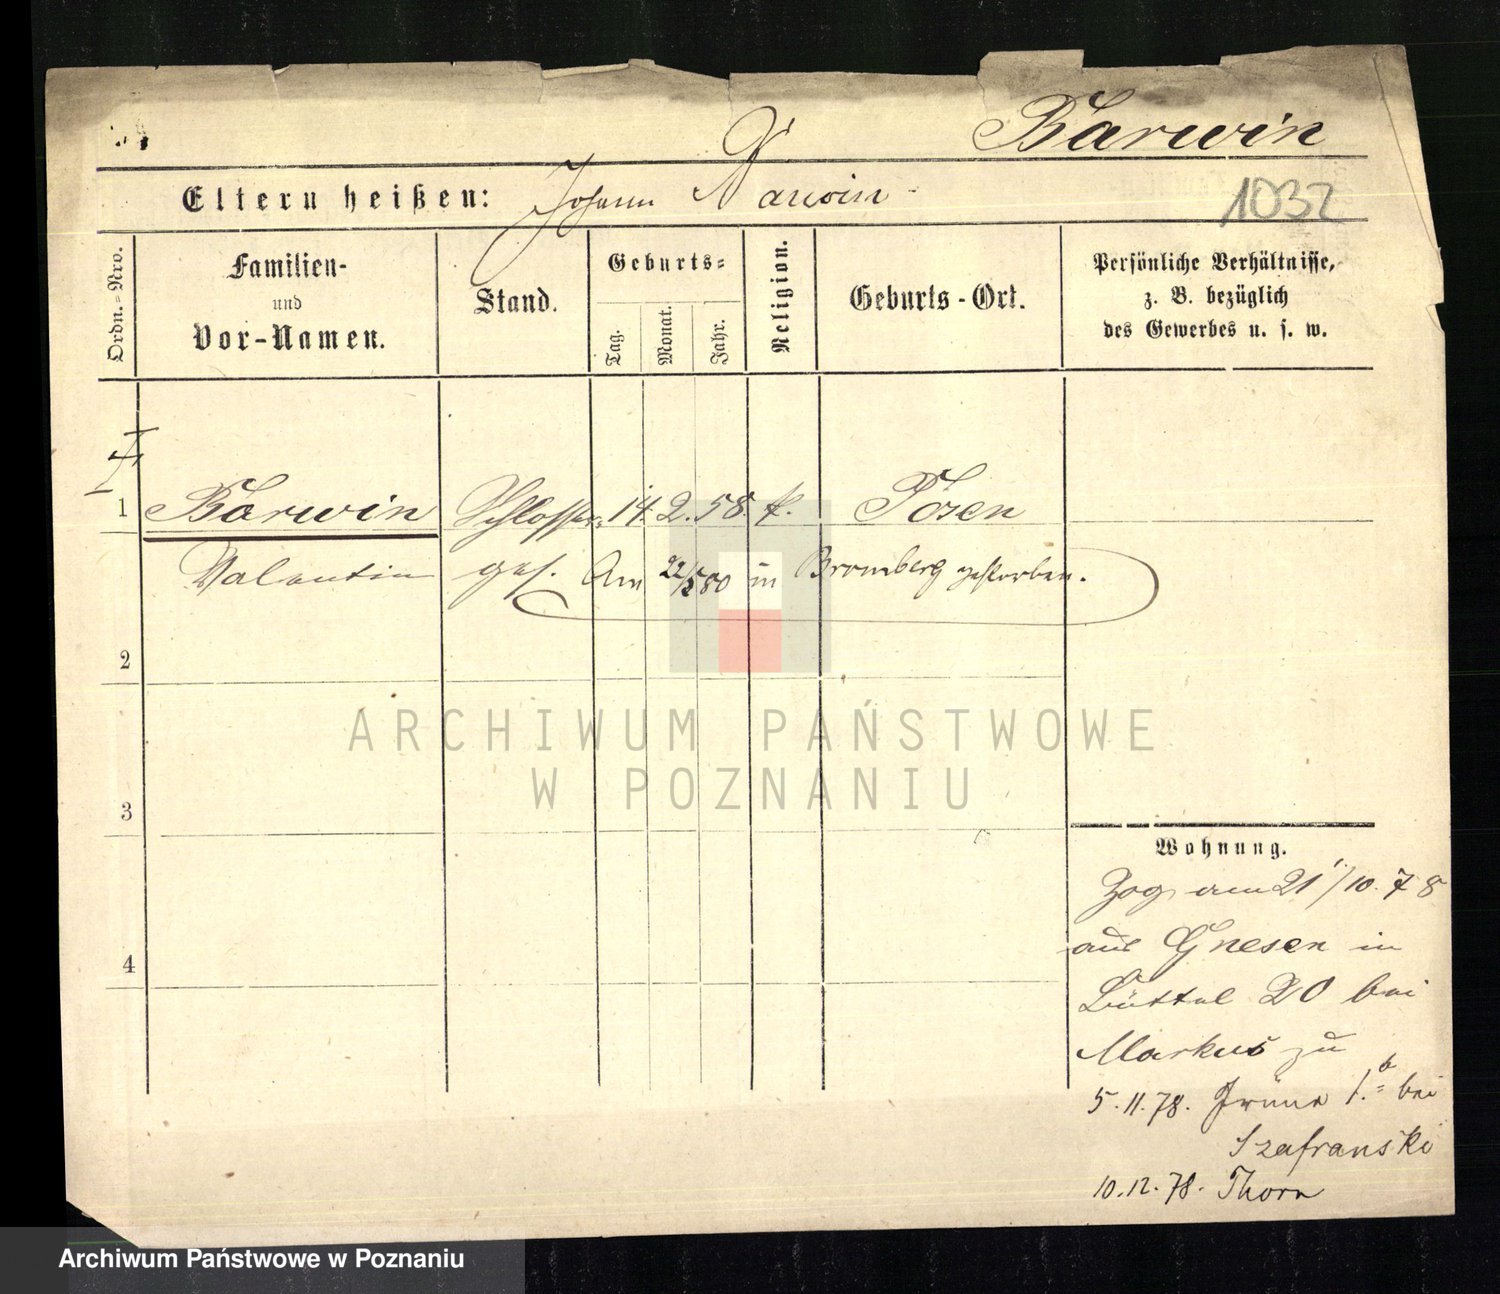 Barwin
Eltern heißen: Johann Barwin
1032
Ordn.-Nro.
Familien-
und
Vor-Namen.
Stand.
Geburts-
Tag.
Monat.
Jahr.
Religion.
Geburts-Ort.
Persönliche Verhältnisse,
z. B. bezüglich
des Gewerbes u. s. w.
1 Barwin Schlosser 14. 2. 58. k. Posen
Valentin ges. Am 22/5 80 in Bromberg gestorben.
2
3
4
Wohnung.
Zog am 21/10. 78
aus Gnesen in
Büttel 20 bei
Markus zu
5.11.78. Grüne 1.b bei
Szafranski
10.12.78. Thorn
ARCHIWUM PAŃSTWOWE
W POZNANIU
Archiwum Państwowe w Poznaniu